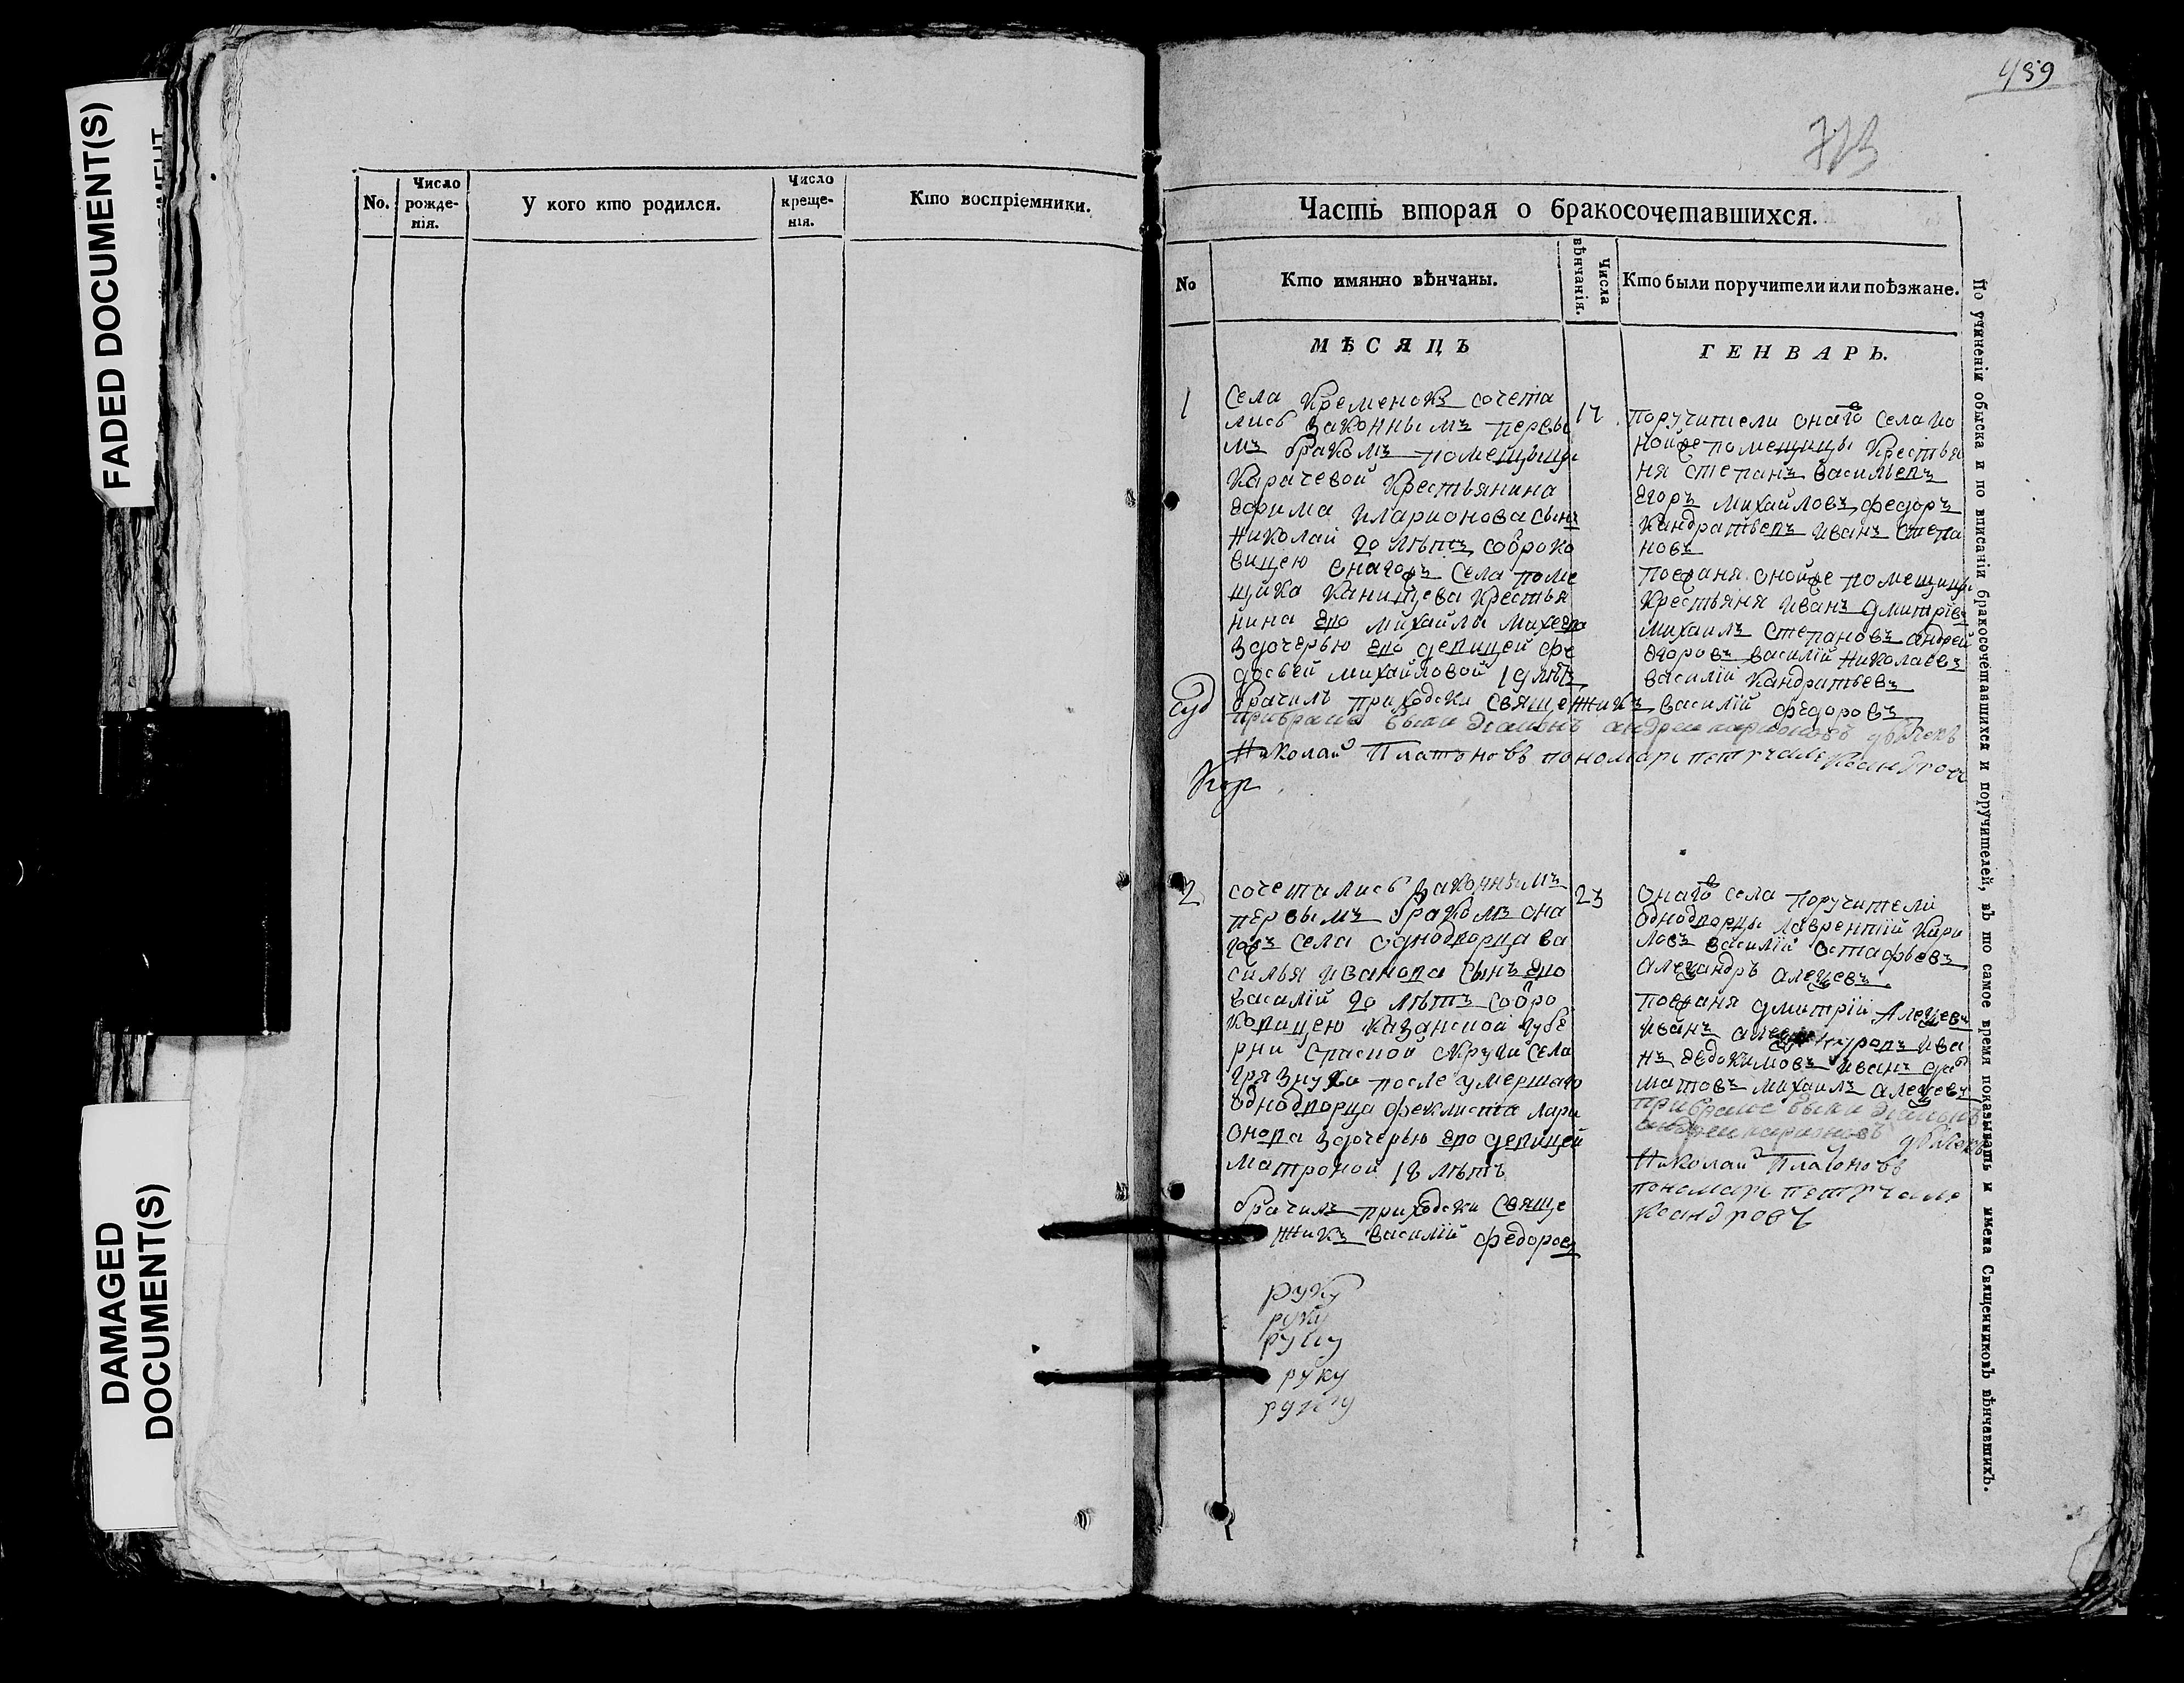 FADED DOCUMENT(S)
DAMAGED
DOCUMENT(S)
No.
Число
рожде-
нія.
У кого кто родился.
Число
креще-
нія.
Кто воспріемники.
459
Часть вторая о бракосочетавшихся.
No
Кто имянно вѣнчаны.
Числа
вѣнчанія.
Кто были поручители или поѣзжане.
МѢСЯЦЪ
ГЕНВАРЬ.
1
Села Кременокъ сочета
лись законнымъ первы
мъ бракомъ помещицы
Карачевой крестьянина
ефима иларионова сынъ
николай 20 лѣтъ соброко
вицею онагожъ села поме
щика Канищева крестья
нина ево михайла
здочерью ево девицей фе
досьей михайловой 19 лѣтъ
брачилъ приходски священникъ василій федоровъ
при браке были андреи ларионовъ
Николай Платоновъ пономарь петръ
17
поручители онаго села
нойже помещицы крестья
ня степанъ васильевъ
егоръ михайловъ федоръ
кандратьевъ иванъ степа
новъ
поезжаня онойже помещицы
крестьяня иванъ дмитріевъ
михаилъ степановъ андрей
егоровъ василій николаевъ
василій кандратьевъ
2
сочетались законнымъ
первымъ бракомъ она
гожъ села однодворца ва
силья иванова сынъ ево
василій 20 лѣтъ собро
ковицею казанской губе
рни спаской округи села
грязнухи после умершаго
однодворца феклиста лари
онова здочерью ево девицей
матроной 18 лѣтъ
брачилъ приходски свяще
нникъ василій федоровъ
23
онаго села поручители
однодворцы лаврентій кири
ловъ василій остафьевъ
александръ алексевъ
поезжаня дмитрій алексевъ
иванъ ива
нъ евдокимовъ иванъ
матовъ михаилъ алексевъ
при браке были
андреи ларионовъ
Николай Платоновъ
пономарь петръ але
ксандровъ
руку
руку
руку
руку
руку
По учиненіи обыска и по вписаніи бракосочетавшихся и поручителей, въ то самое время показывать и имена Священниковъ вѣнчавшихъ.